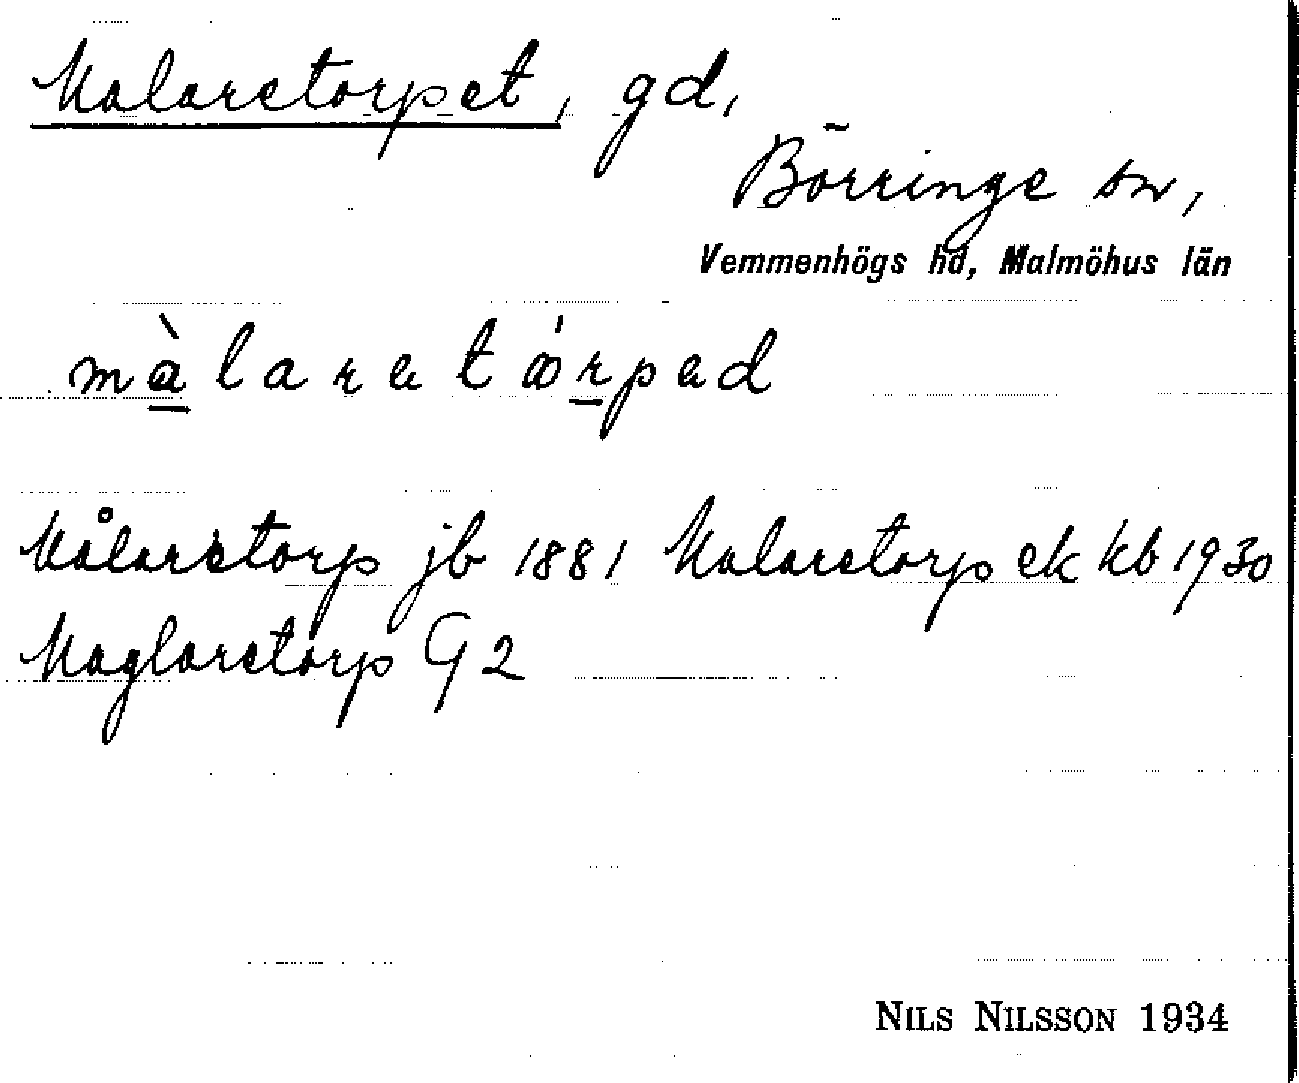 Malaretorpet, gd,
Börringe sn,
Vemmenhögs hd, Malmöhus län
màlaretǿrpad
Målaretorp jb 1881 Malaretorp ek kb 1930
Maglaretorp G2
NILS NILSSON 1934